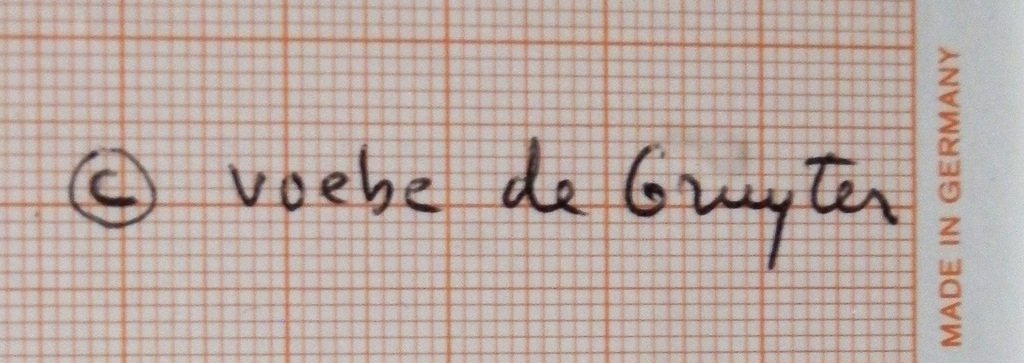 © voebe de Gruyter
MADE IN GERMANY